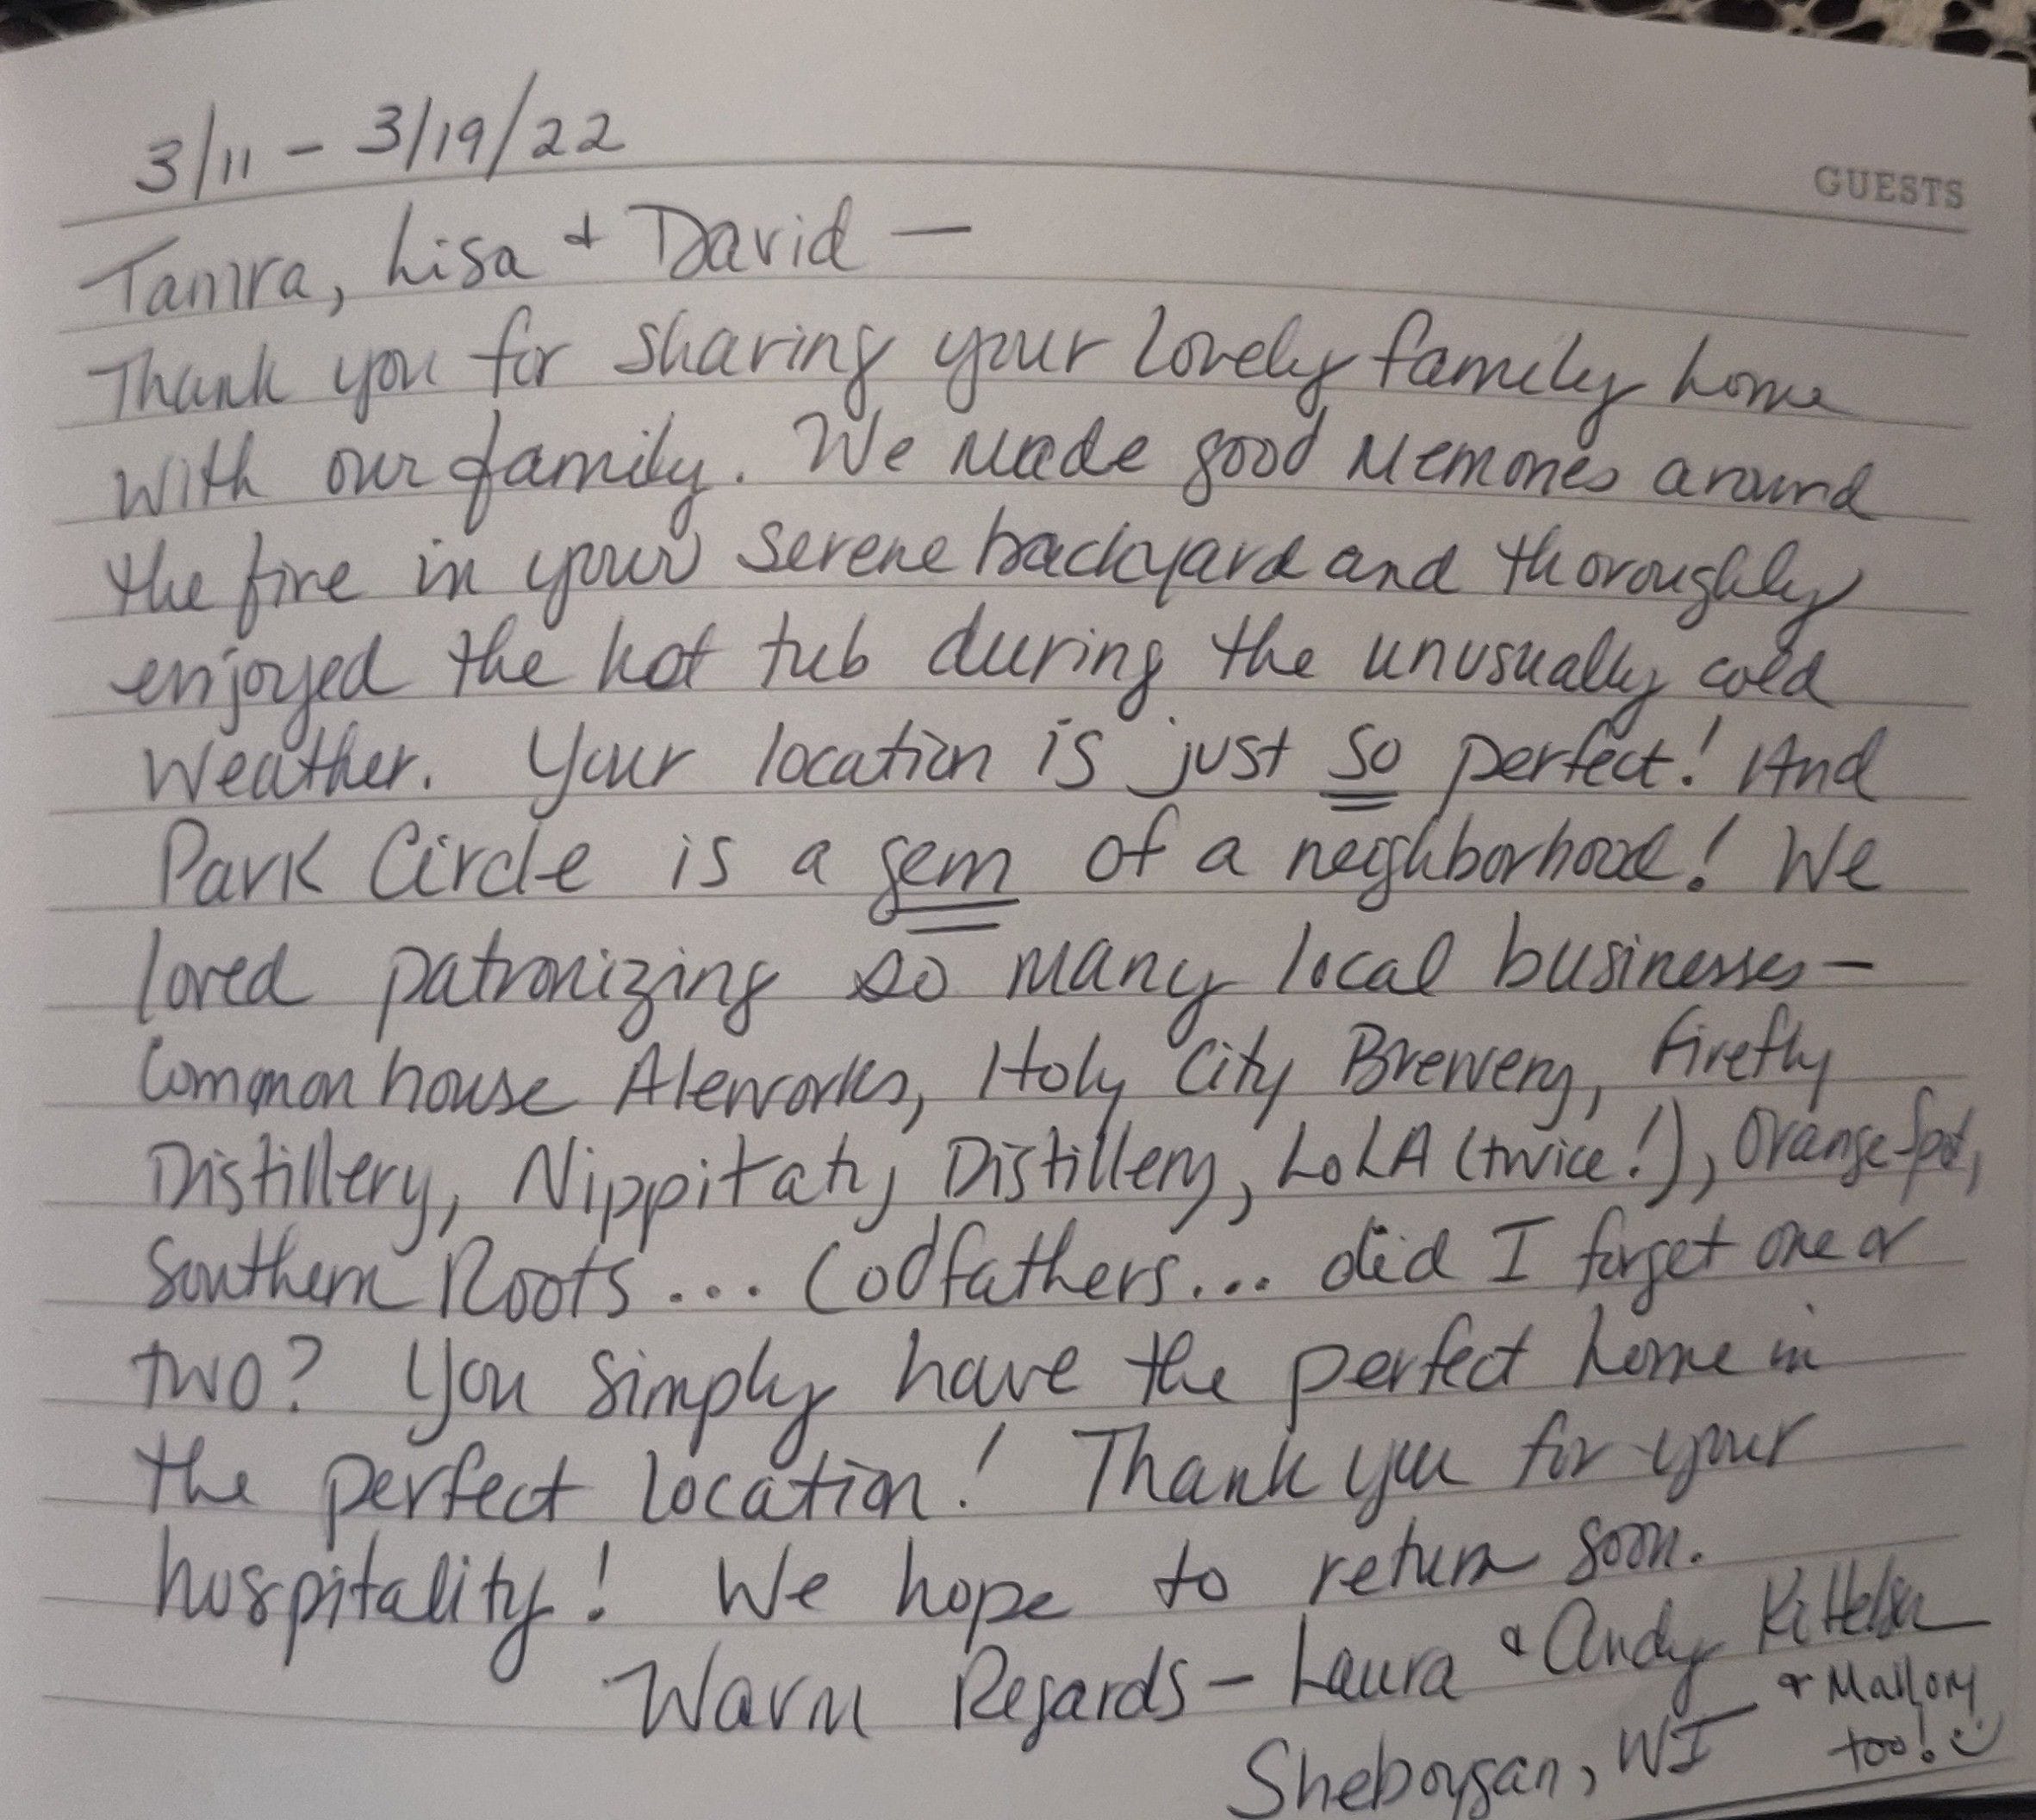 3/11 - 3/19/22
GUESTS
Tamra, Lisa + David —
Thank you for sharing your lovely family home
with our family. We made good memories around
the fire in your serene backyard and thoroughly
enjoyed the hot tub during the unusually cold
weather. Your location is just so perfect! And
Park Circle is a gem of a neighborhood! We
loved patronizing so many local businesses —
Commonhouse Aleworks, Holy City Brewery, Firefly
Distillery, Nippitaty Distillery, LoLA (twice!), Orange Spot,
Southern Roots... Codfathers... did I forget one or
two? You simply have the perfect home in
the perfect location! Thank you for your
hospitality! We hope to return soon.
Warm Regards — Laura & Andy Kittelson
+ Mallory
too!
Sheboygan, WI